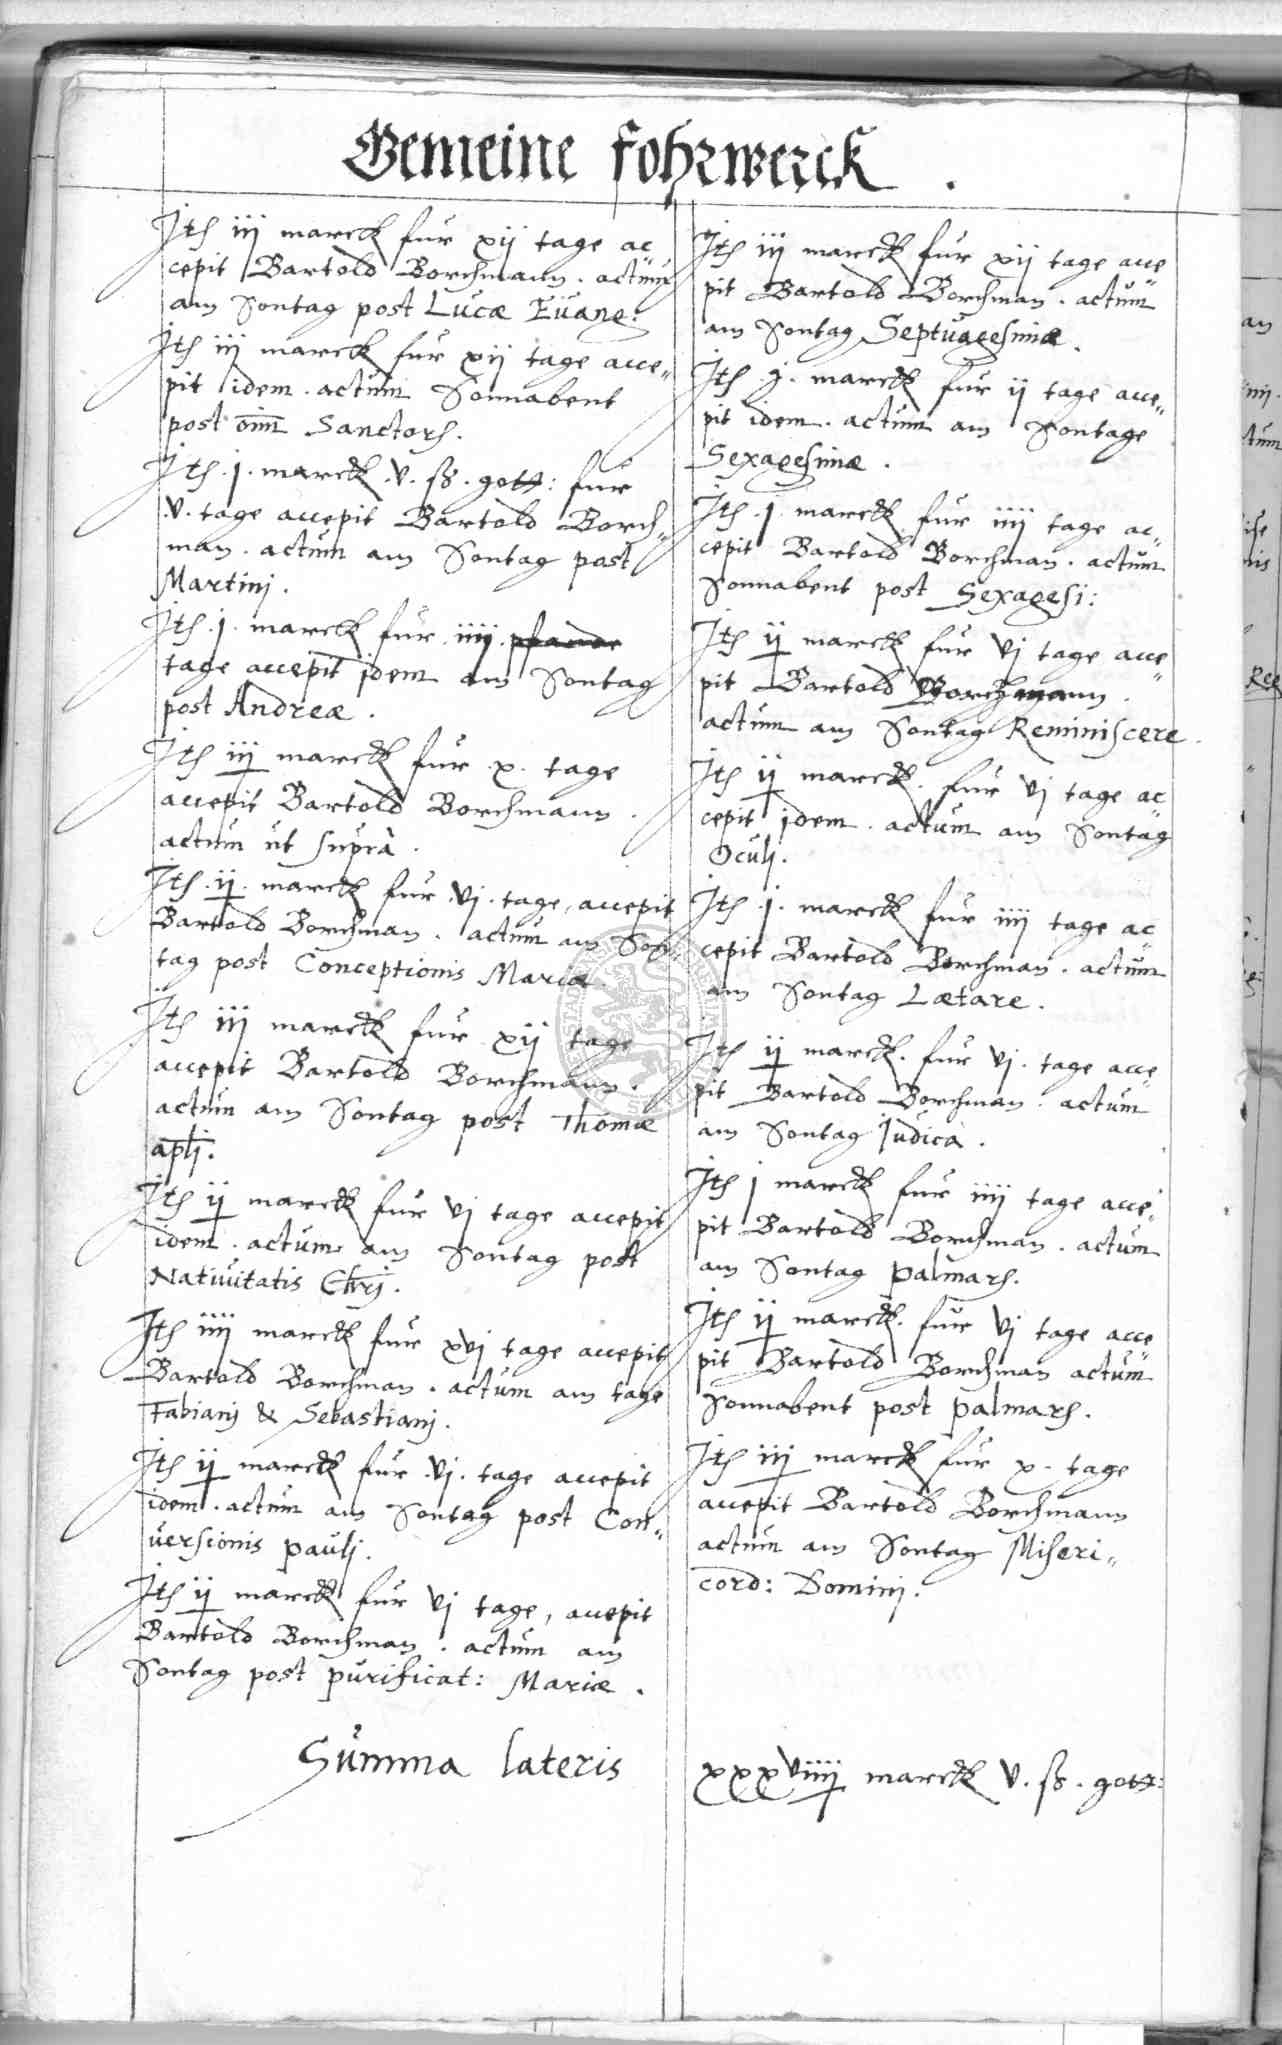 Gemeine fohrwerck.
Ite iij marck fur xij tage ac
cepit Bartold Borchmann. actum
am Sontag post Lucæ Euang:
Ite iij marck fur xij tage acce„
pit idem. actum Sonnabent
post oim Sanctor.
Ite .j. marck .v. ß. gott: fur
.v. tage accepit Bartold Borch„
man. actum am Sontag post
Martinj.
Ite .j. marck fur iiij
tage accepit jdem am Sontag
post Andreæ.
Ite iij marck fur .x. tage
accepit Bartold Borchmann.
actum ut supra.
Ite .ij. marck fur .vj. tage, accepit
Bartold Borchman. actum am Son„
tag post Conceptionis Mariæ.
Ite iij marck fur xij tage
accepit Bartold Borchmann.
actum am Sontag post Thomæ
aplj.
Ite ij marck fur vj tage accepit
idem. actum am Sontag post
Natiuitatis Chrj.
Ite iiij marck fur xvj tage accepit
Bartold Borchman. actum am tage
Fabianj & Sebastianj.
Ite ij marck fur .vj. tage accepit
idem. actum am Sontag post Con„
uersionis paulj.
Ite ij marck fur vj tage, accepit
Bartold Borchman. actum am
Sontag post purificat: Mariæ.
Ite iij marck fur xij tage acce„
pit Bartold Borchman. actum
am Sontag Septuagesimæ.
Ite .j. marck fur ij tage acce„
pit idem. actum am Sontage
Sexagesimæ.
Ite .j. marck fur iiij tage ac„
cepit Bartold Borchman. actum
Sonnabent post Sexagesi:
Ite ij marck fur vj tage acce„
pit Bartold Borchmann.
actum am Sontag Reminiscere.
Ite ij marck. fur vj tage ac„
cepit jdem. actum am Sontag
Oculj.
Ite .j. marck fur iiij tage ac„
cepit Bartold Borchman. actum
am Sontag Lætare.
Ite ij marck. fur vj. tage acce„
pit Bartold Borchman. actum
am Sontag Judica.
Ite j marck fur iiij tage acce„
pit Bartold Borchman. actum
am Sontag palmar.
Ite ij marck. fur vj tage acce„
pit Bartold Borchman actum
Sonnabent post palmar.
Ite iij marck fur x. tage
accepit Bartold Borchmann
actum am Sontag Miseri„
cord: Dominj.
Summa lateris xxxviiij marck v. ß. gott: